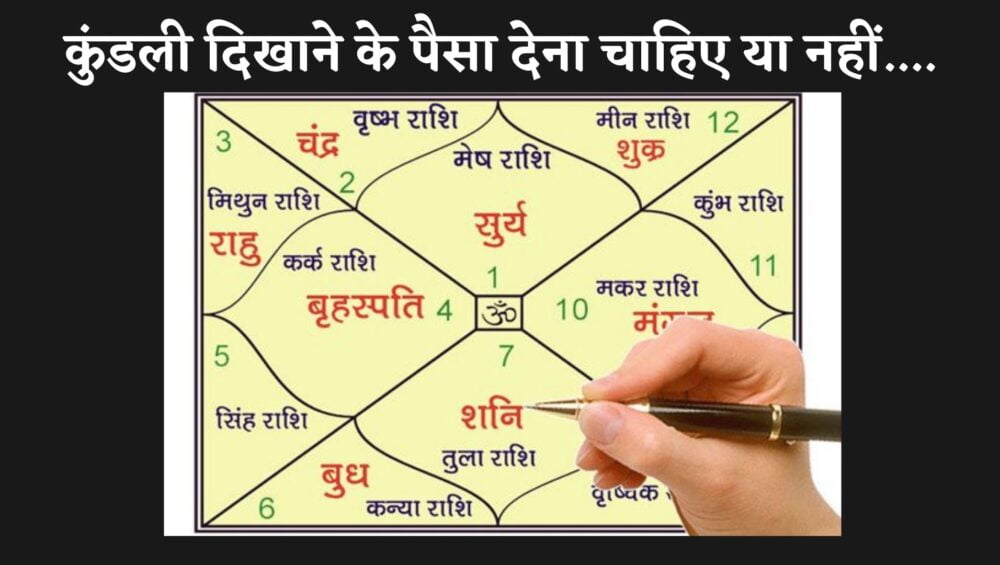 कुंडली दिखाने के पैसा देना चाहिए या नहीं....
वृष्भ राशि
मीन राशि 12
3
चंद्र
शुक्र
मेष राशि
2
मिथुन राशि
कुंभ राशि
राहु
सुर्य
कर्क राशि
11
1
मकर राशि
बृहस्पति 4
ॐ
10
7
5
शनि
सिंह राशि
तुला राशि
बुध
6
कन्या राशि